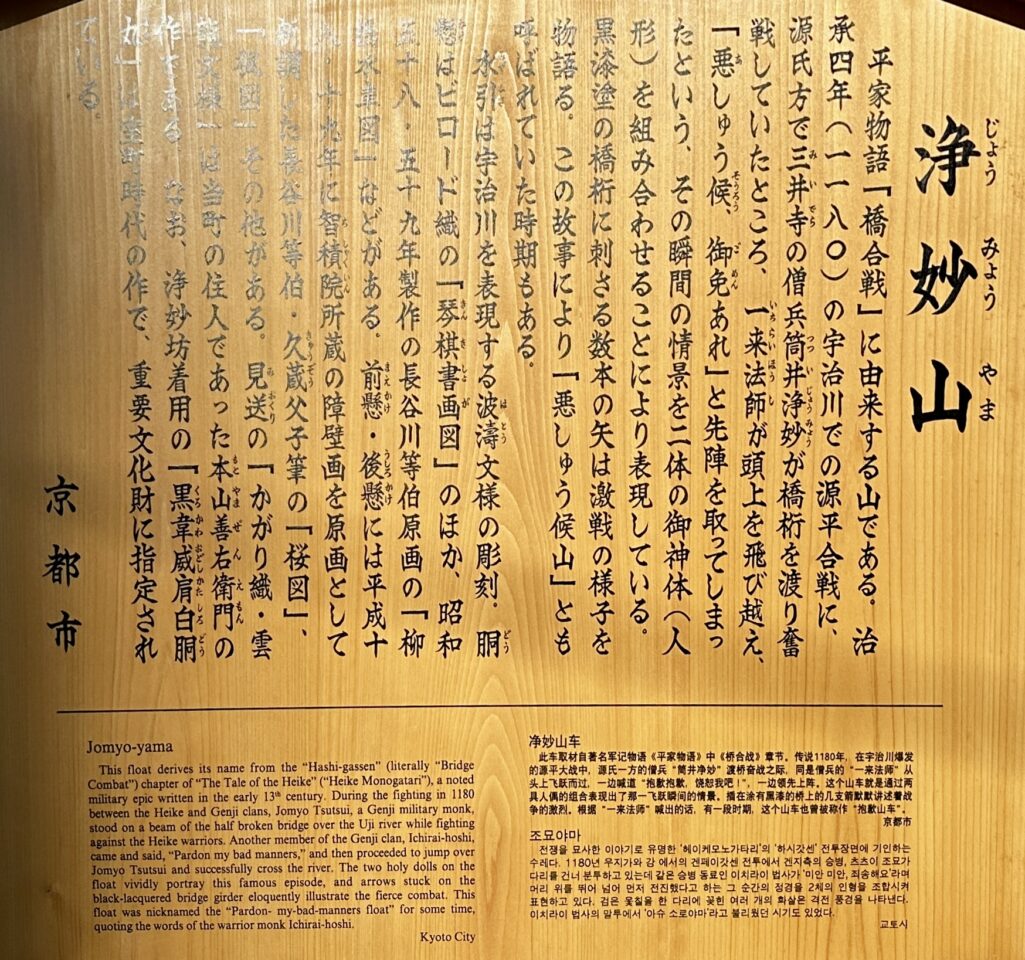 浄妙山
じょうみょうやま
平家物語「橋合戦」に由来する山である。治
承四年(一一八〇)の宇治川での源平合戦に、
源氏方で三井寺の僧兵筒井浄妙が橋桁を渡り奮
戦していたところ、一来法師が頭上を飛び越え、
「悪しゅう候、御免あれ」と先陣を取ってしまっ
たという、その瞬間の情景を二体の御神体(人
形)を組み合わせることにより表現している。
黒漆塗の橋桁に刺さる数本の矢は激戦の様子を
物語る。この故事により「悪しゅう候山」とも
呼ばれていた時期もある。
水引は宇治川を表現する波濤文様の彫刻。胴
懸は、ビロード織の「琴棋書画図」のほか、昭和
五十八・五十九年製作の長谷川等伯原画の「柳
橋水車図」などがある。前懸・後懸には平成十
八・十九年に智積院所蔵の障壁画を原画として
新調した長谷川等伯・久蔵父子筆の「桜図」、
「楓図」その他がある。見送の「かがり織・雲
龍文様」は当町の住人であった本山善右衛門の
作である。なお、浄妙坊着用の「黒韋威肩白胴
丸」は室町時代の作で、重要文化財に指定され
ている。
京都市
Jomyo-yama
This float derives its name from the “Hashi-gassen” (literally “Bridge
Combat”) chapter of “The Tale of the Heike” (“Heike Monogatari”), a noted
military epic written in the early 13th century. During the fighting in 1180
between the Heike and Genji clans, Jomyo Tsutsui, a Genji military monk,
stood on a beam of the half broken bridge over the Uji river while fighting
against the Heike warriors. Another member of the Genji clan, Ichirai-hoshi,
came and said, “Pardon my bad manners,” and then proceeded to jump over
Jomyo Tsutsui and successfully cross the river. The two holy dolls on the
float vividly portray this famous episode, and arrows stuck on the
black-lacquered bridge girder eloquently illustrate the fierce combat. This
float was nicknamed the “Pardon- my-bad-manners float” for some time,
quoting the words of the warrior monk Ichirai-hoshi.
Kyoto City
净妙山车
此车取材自著名军记物语《平家物语》中《桥合战》章节。传说1180年，在宇治川爆发
的源平大战中，源氏一方的僧兵“筒井净妙”渡桥奋战之际，同是僧兵的“一来法师”从
头上飞跃而过，一边喊道“抱歉抱歉，饶恕我吧！”，一边领先上阵。这个山车就是通过两
具人偶的组合表现出了那一飞跃瞬间的情景。插在涂有黑漆的桥上的几支箭默默讲述着战
争的激烈。根据“一来法师”喊出的话，有一段时期，这个山车也曾被称作“抱歉山车”。
京都市
조묘야마
전쟁을 묘사한 이야기로 유명한 '헤이케모노가타리'의 '하시갓센' 전투장면에 기인하는
수레다. 1180년 우지가와 강 에서의 겐페이갓센 전투에서 겐지측의 승병, 츠츠이 조묘가
다리를 건너 분투하고 있는데 같은 승병 동료인 이치라이 법사가 '미안 미안, 죄송해요'라며
머리 위를 뛰어 넘어 먼저 전진했다고 하는 그 순간의 정경을 2체의 인형을 조합시켜
표현하고 있다. 검은 옻칠을 한 다리에 꽂힌 여러 개의 화살은 격전 풍경을 나타낸다.
이치라이 법사의 말투에서 '아슈 소로야마'라고 불리웠던 시기도 있었다.
교토시